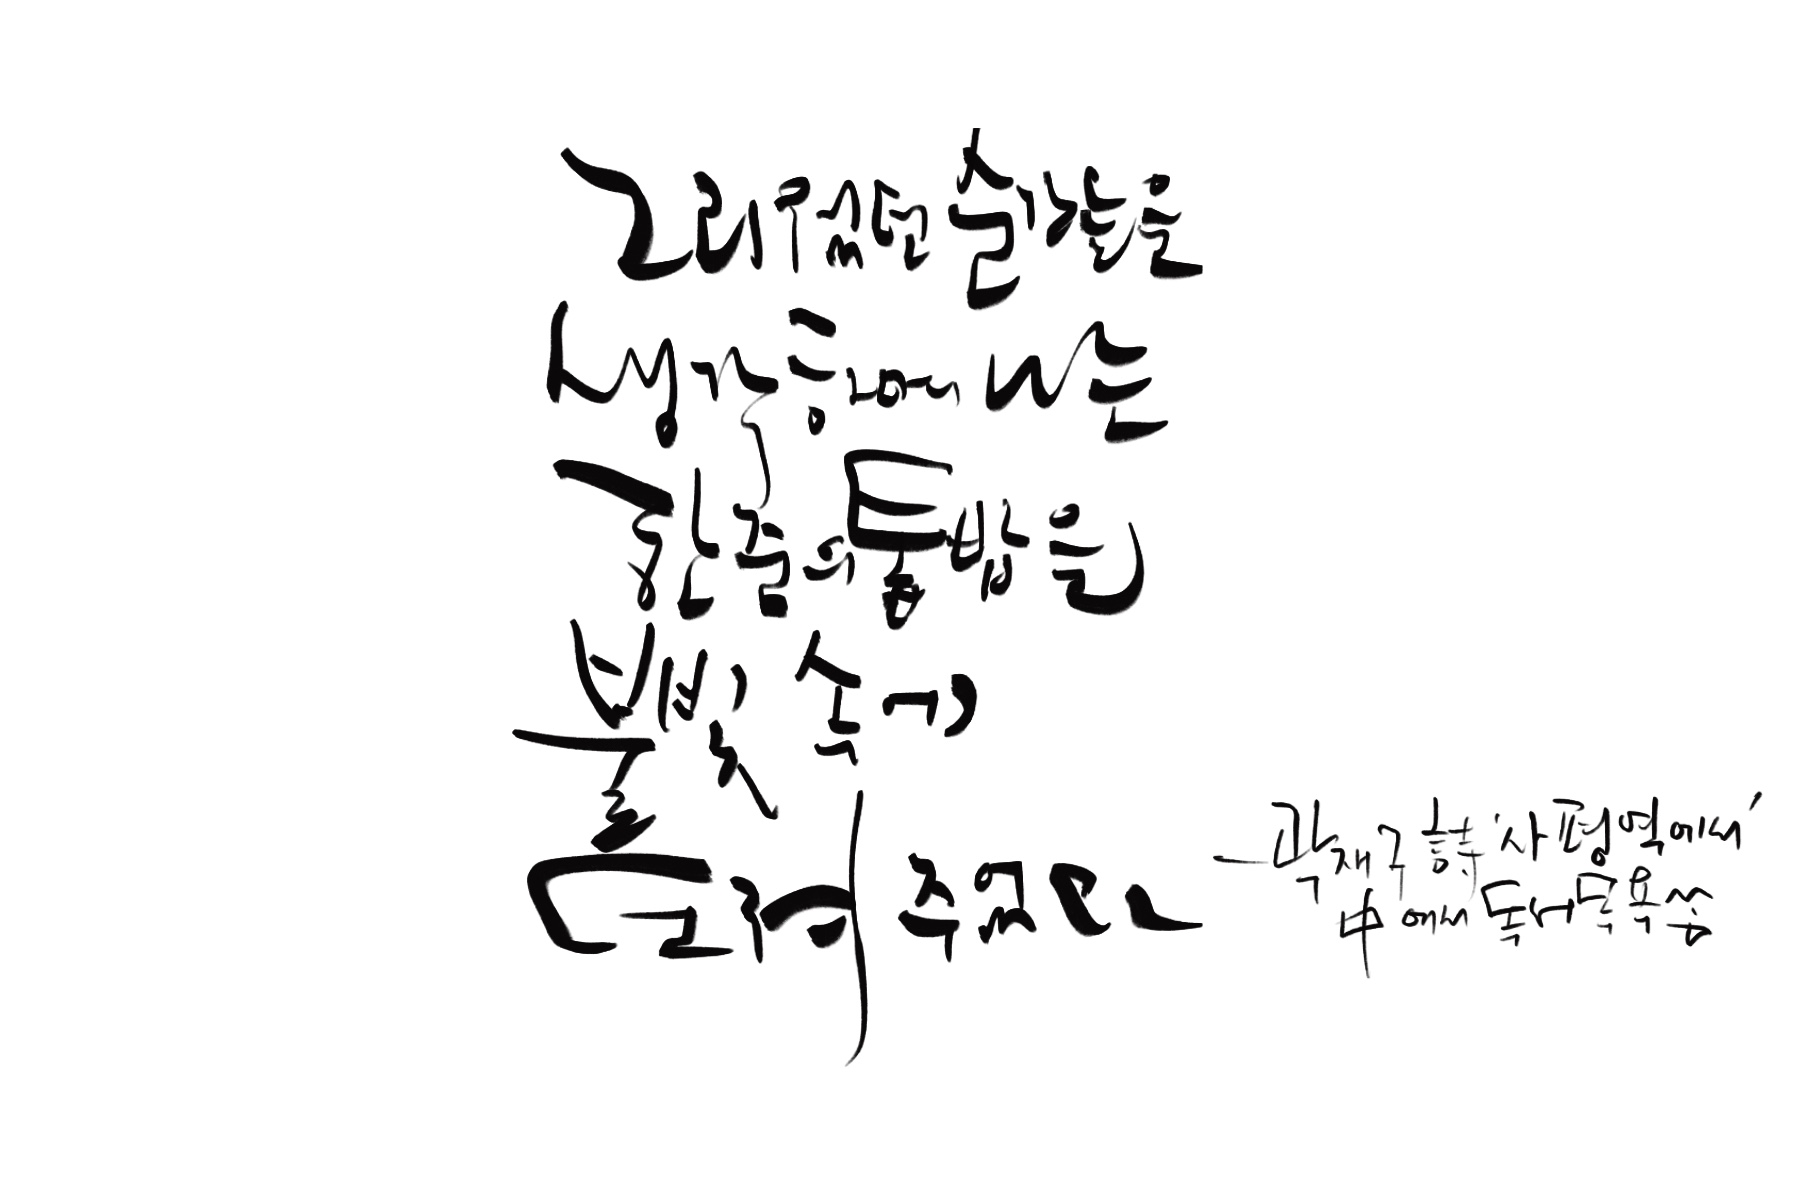 그리웠던 순간들을
생각하며 나는
한줌의 톱밥을
불빛 속에
던져 주었다
—곽재구 詩 '사평역에서'
中에서 독서목욕 씀